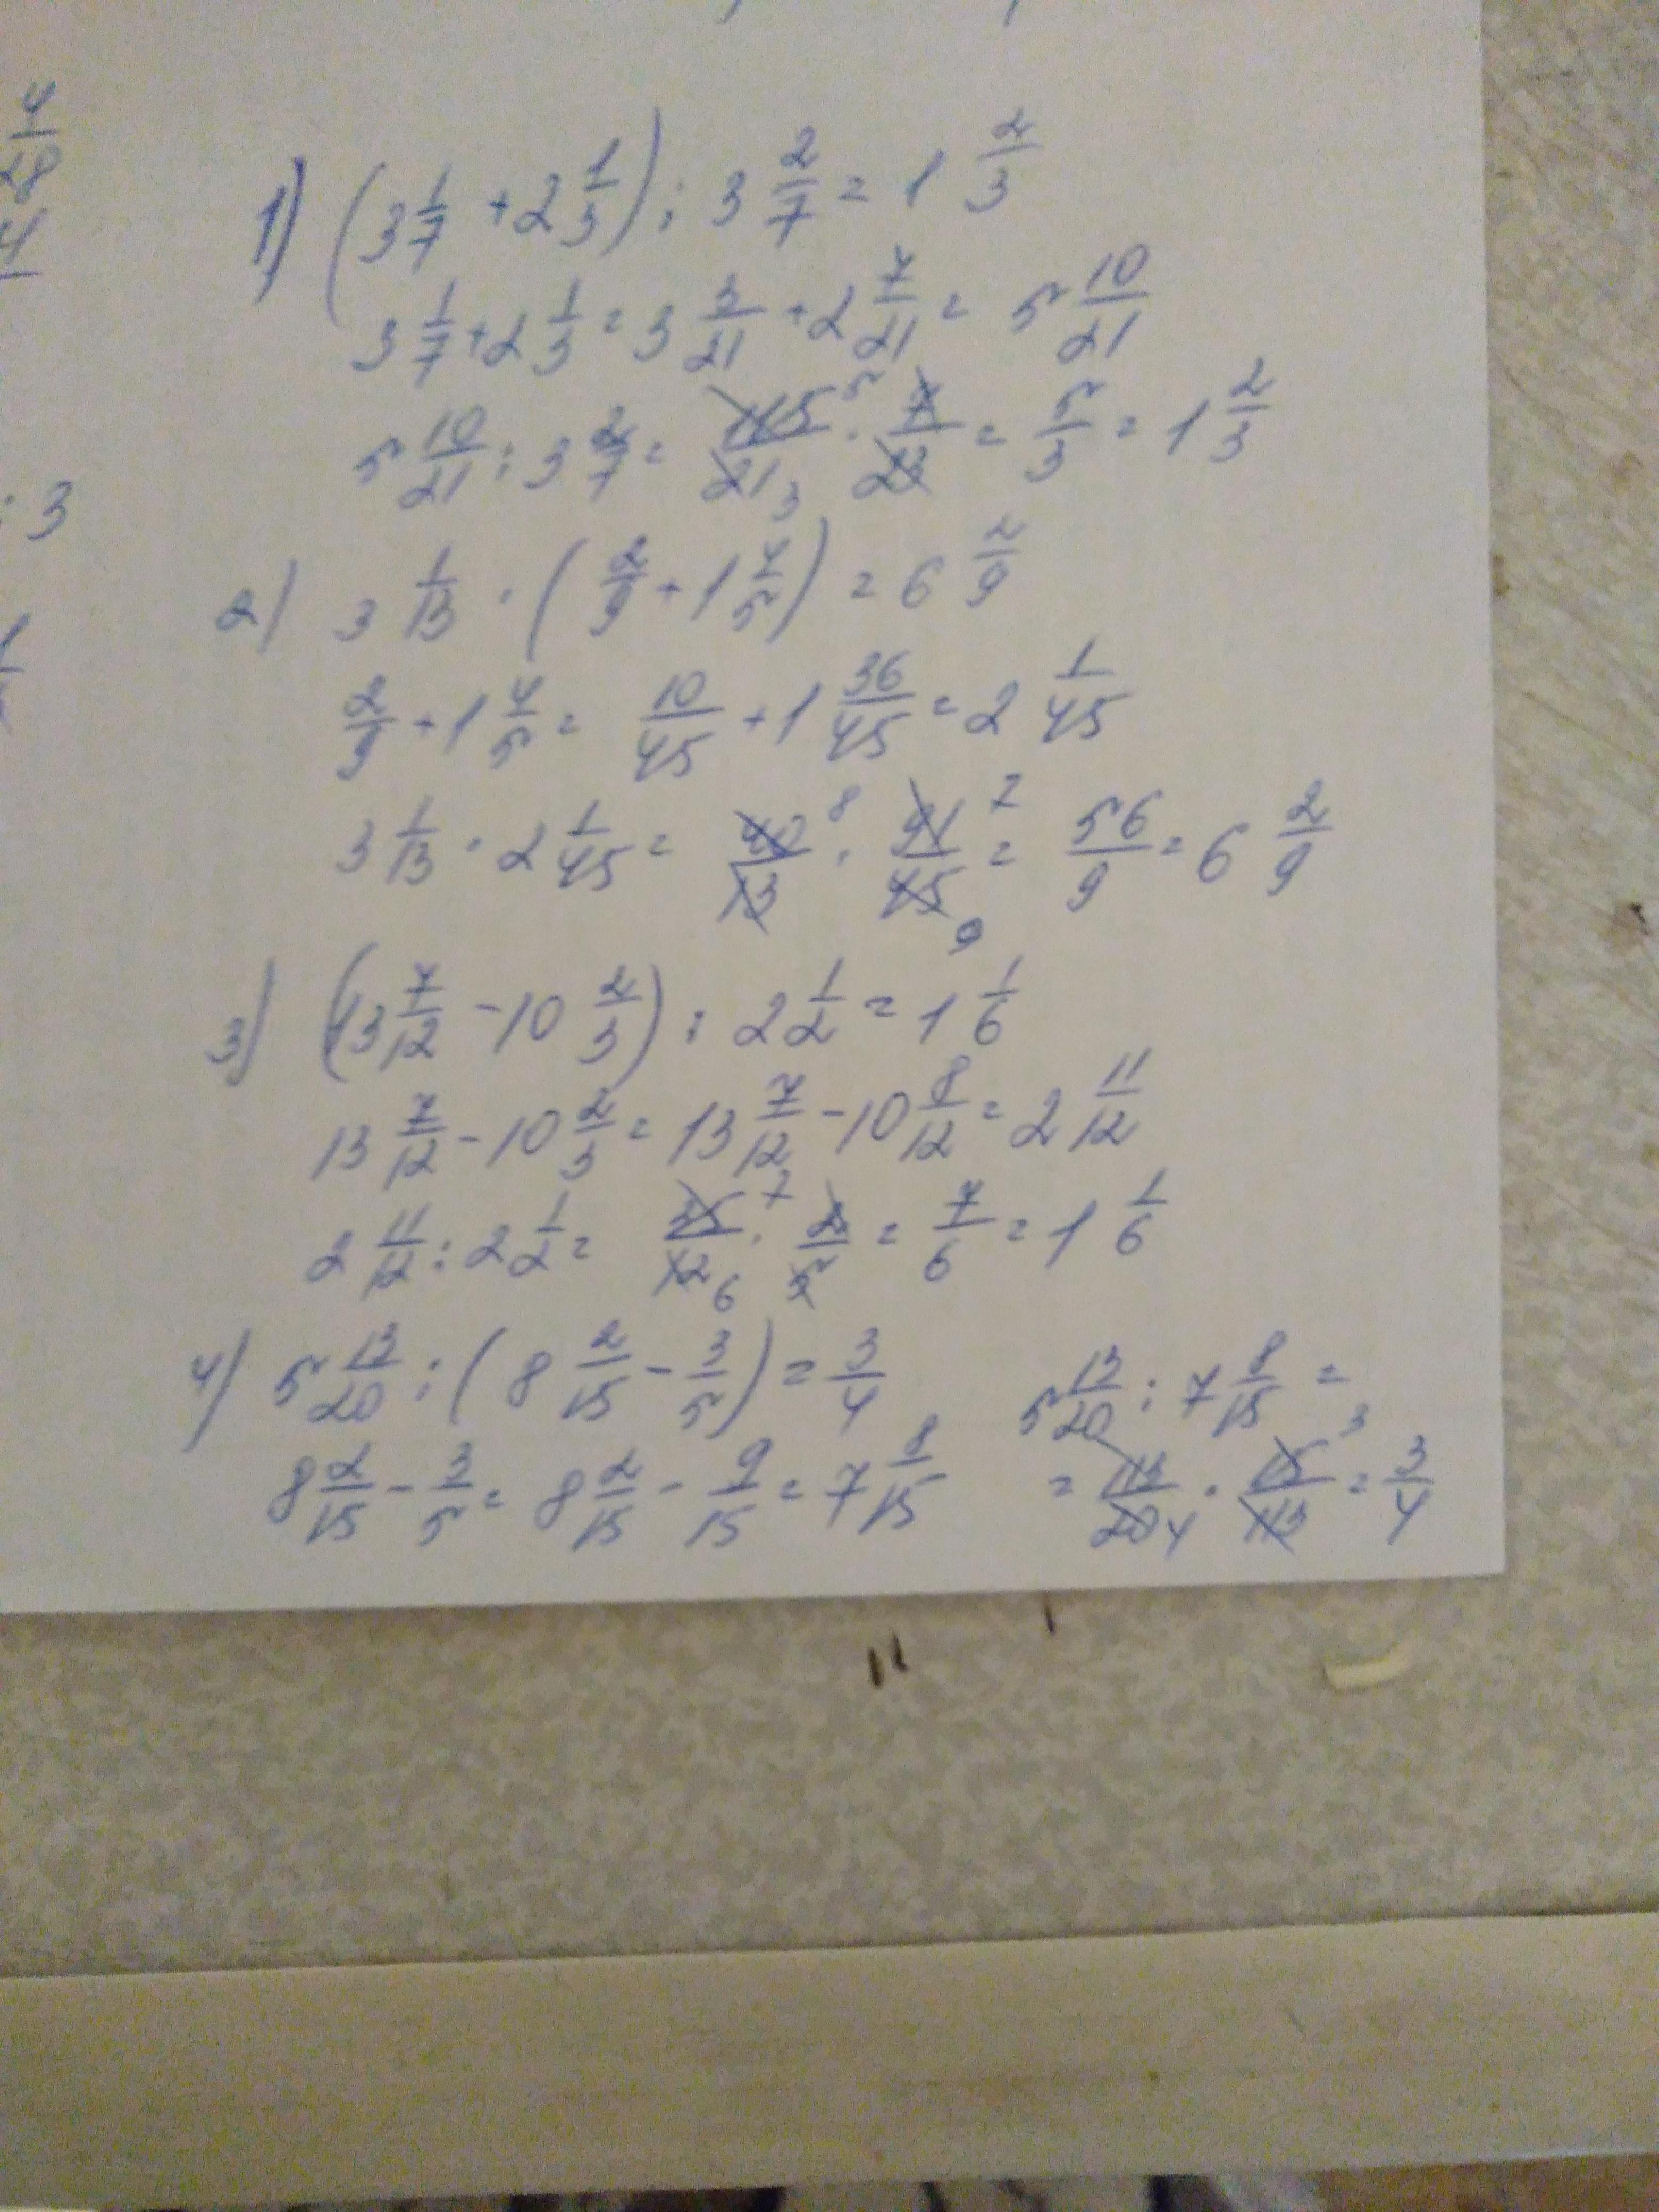 4/28
4
: 3
1
1) (3 1/7 + 2 1/3) : 3 2/7 = 1 2/3
3 1/7 + 2 1/3 = 3 3/21 + 2 7/21 = 5 10/21
5 10/21 : 3 2/7 = 115/21 5 3 · 7/23 = 5/3 = 1 2/3
2) 3 1/13 · (2/9 + 1 4/5) = 6 2/9
2/9 + 1 4/5 = 10/45 + 1 36/45 = 2 1/45
3 1/13 · 2 1/45 = 40/13 8 · 91/45 7 9 = 56/9 = 6 2/9
3) (13 7/12 - 10 2/3) : 2 1/2 = 1 1/6
13 7/12 - 10 2/3 = 13 7/12 - 10 8/12 = 2 11/12
2 11/12 : 2 1/2 = 35/12 7 6 · 2/5 = 7/6 = 1 1/6
4) 5 13/20 : (8 2/15 - 3/5) = 3/4
8 2/15 - 3/5 = 8 2/15 - 9/15 = 7 8/15
5 13/20 : 7 8/15 =
= 113/20 4 · 15/113 3 = 3/4